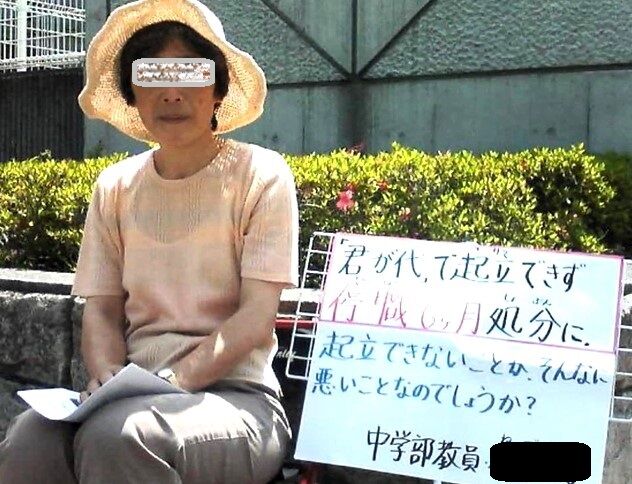 「君が代」で起立できず
停職6ヶ月処分に.
起立できないことが、そんなに
悪いことなのでしょうか？
中学部教員・